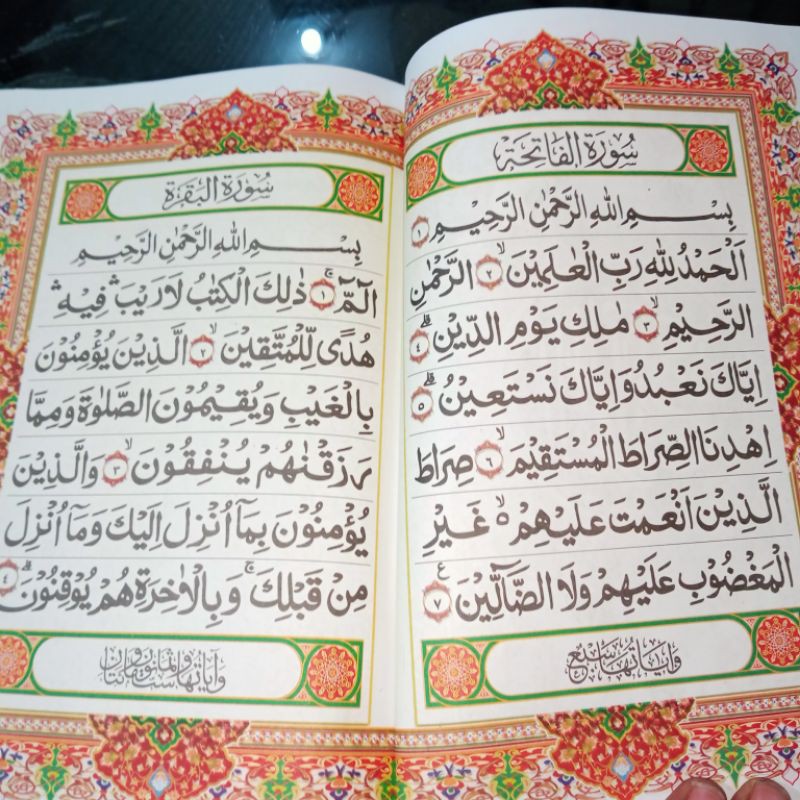 سُورَةُ الْفَاتِحَةِ
بِسْمِ اللهِ الرَّحْمٰنِ الرَّحِيْمِ ١
اَلْحَمْدُ لِلّٰهِ رَبِّ الْعٰلَمِيْنَۙ ٢ الرَّحْمٰنِ
الرَّحِيْمِۙ ٣ مٰلِكِ يَوْمِ الدِّيْنِۗ ٤
اِيَّاكَ نَعْبُدُ وَاِيَّاكَ نَسْتَعِيْنُۗ ٥
اِهْدِنَا الصِّرَاطَ الْمُسْتَقِيْمَۙ ٦ صِرَاطَ
الَّذِيْنَ اَنْعَمْتَ عَلَيْهِمْ ەۙ غَيْرِ
الْمَغْضُوْبِ عَلَيْهِمْ وَلَا الضَّاۤلِّيْنَ ٧ ع
وَاٰيَاتُهَا سَبْعٌ
سُورَةُ الْبَقَرَةِ
بِسْمِ اللهِ الرَّحْمٰنِ الرَّحِيْمِ
الۤمّۤۚ ١ ذٰلِكَ الْكِتٰبُ لَا رَيْبَۛ فِيْهِۛ
هُدًى لِّلْمُتَّقِيْنَۙ ٢ الَّذِيْنَ يُؤْمِنُوْنَ
بِالْغَيْبِ وَيُقِيْمُوْنَ الصَّلٰوةَ وَمِمَّا
رَزَقْنٰهُمْ يُنْفِقُوْنَۙ ٣ وَالَّذِيْنَ
يُؤْمِنُوْنَ بِمَآ اُنْزِلَ اِلَيْكَ وَمَآ اُنْزِلَ
مِنْ قَبْلِكَۚ وَبِالْاٰخِرَةِ هُمْ يُوْقِنُوْنَۗ ٤